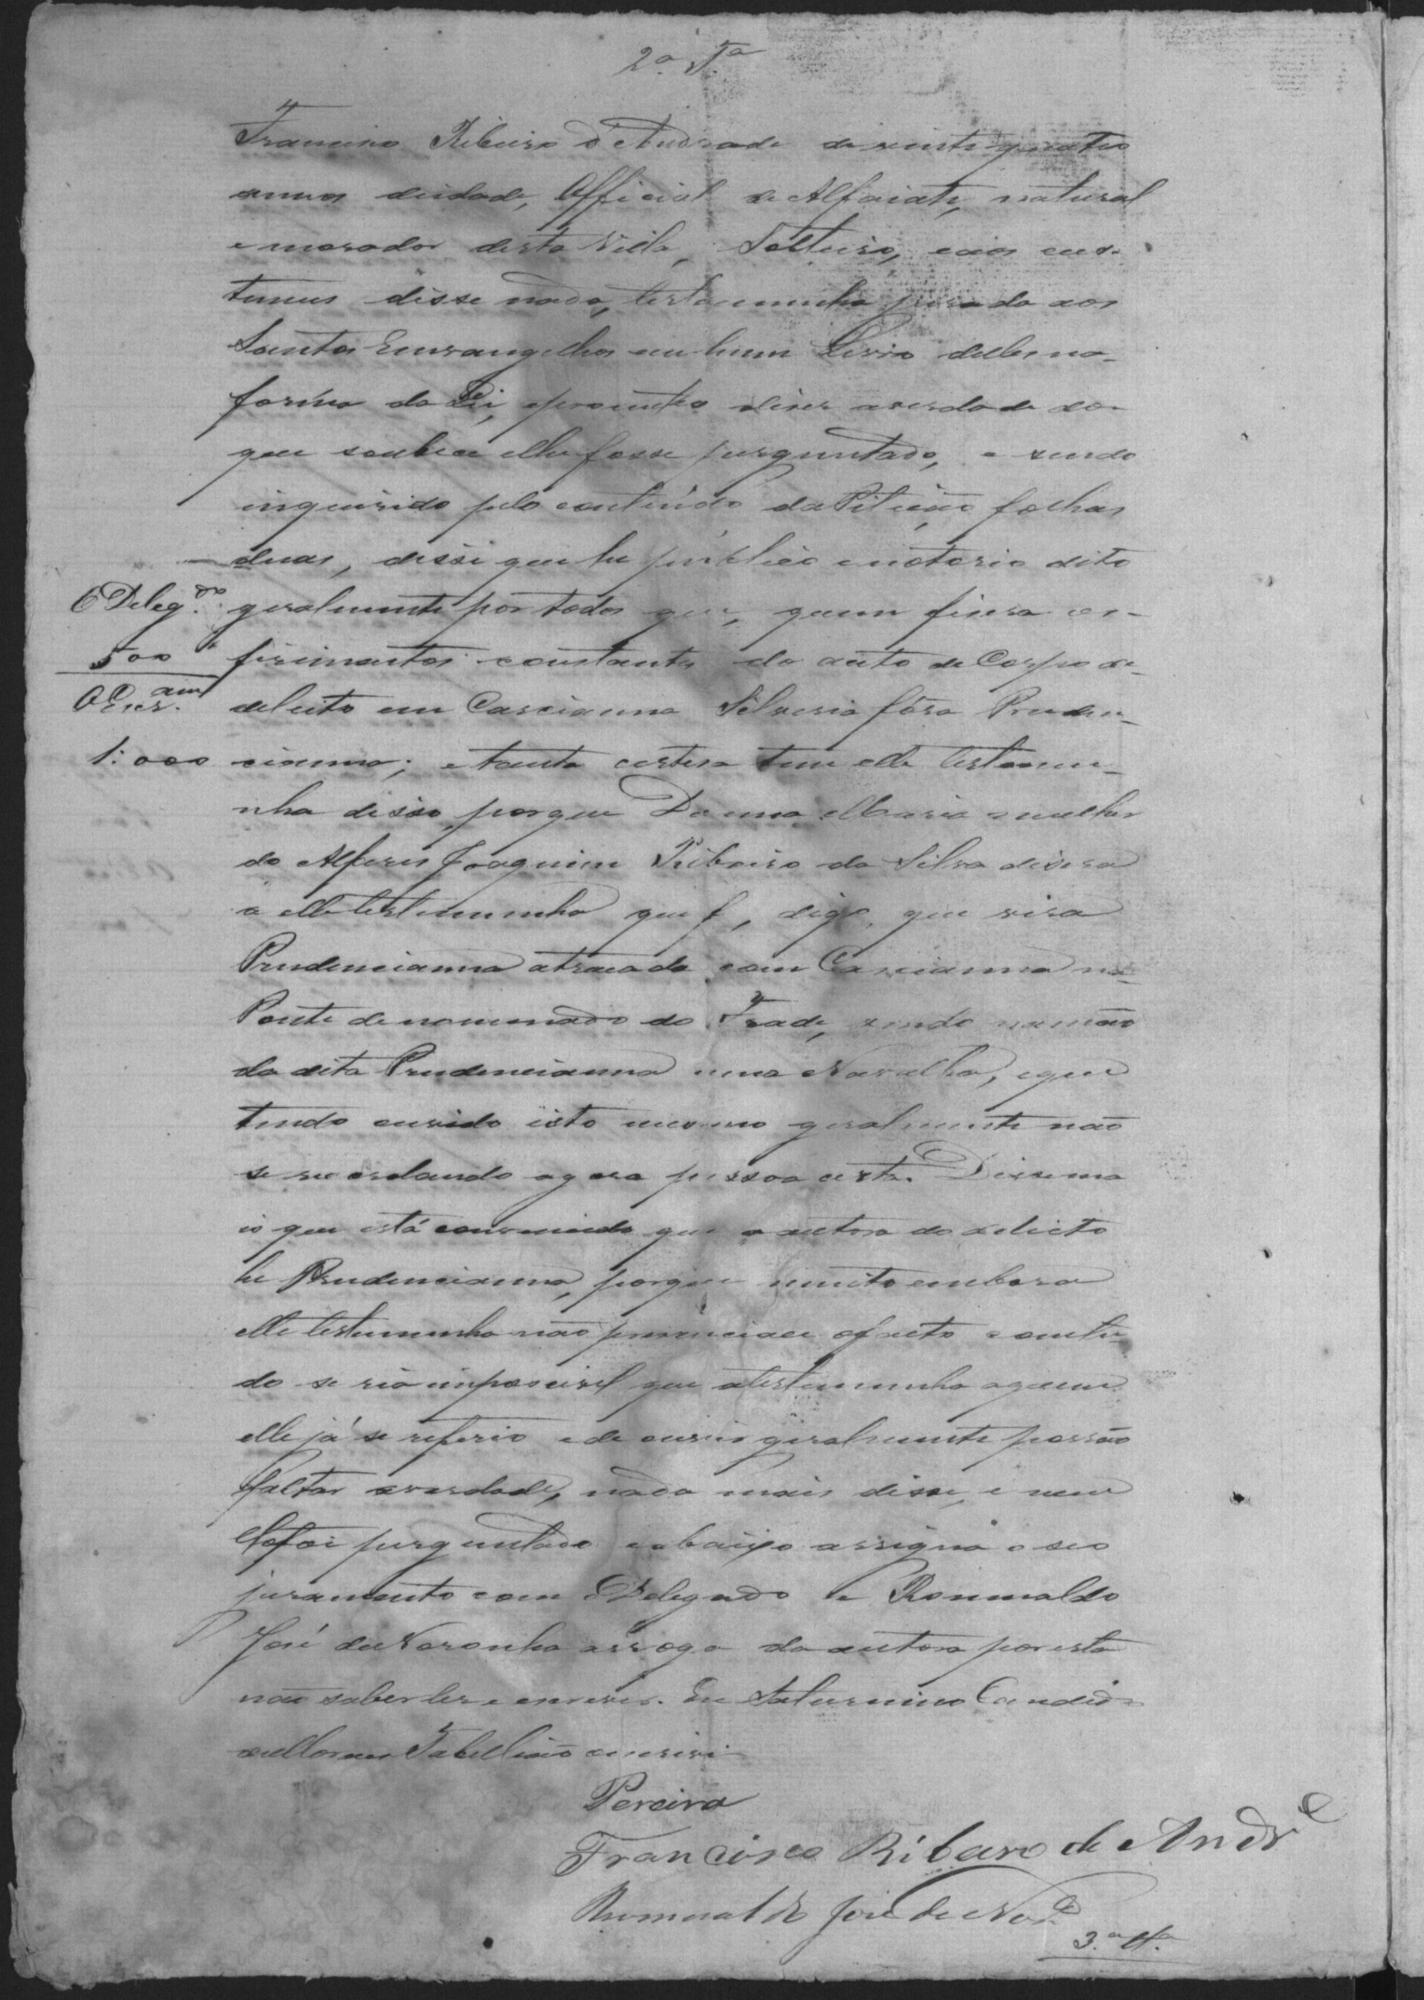 2ª Tª
Francisco Ribeiro d'Andrade de vinte quatro
annos deidade, Official de Alfaiate, natural
e morador desta Villa, Solteiro, eaos cus-
tumes disse nada, testemunha jurada aos
Santos Envangelhos em hum Livro delles na
forma da Lei, eprometteo diser averdade do
que soubece elhe fosse purguntado, e sendo
inquirido pelo contiúdo da Pitição folhas
duas, dissi que he publico enotorio dito
O Delegdo geralmente por todos que, quem fisera os
500 firimentos constantes do auto de Corpo de
delicto em Cascianna Silveria fôra Pruden-
1:000 cianna; etanta certesa tem elle testemu-
nha disso, porque Donna Maria mulher
do Alferes Joaquim Ribeiro da Silva dissera
a elle testemunha que f, digo, que vira
Prudencianna atracada com Cascianna na
Ponte denomenada do Frade, sendo na mão
da dita Prudencianna uma Navalha, eque
tendo ouvido isto mesmo geralmente não
se recordando agora pessoa certa. Disse ma
is que está convencido que a autora do delicto
he Prudencianna, porque muito embora
elle testemunha não prenciace ofacto contu-
do seria impocivel que atestemunha aquem
elle já se referio ede ouvir geralmente possão
faltar averdade, nada mais disse, e nem
lhefoi purguntado eabaixo assigna o seo
juramento com o Delegado e Romualdo
José de Noronha arrogo da autora por esta
não saber ler e escrever. Eu Saturnino Candido
de Moraes Tabellião escrivi
Pereira
Francisco Ribeiro de Andre
Romualdo José de Nora
3.ª Tª